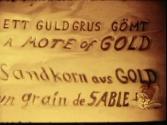 ETT GULDGRUS GÖMT
A MOTE of GOLD
Sandkorn aus GOLD
un grain de SABLE